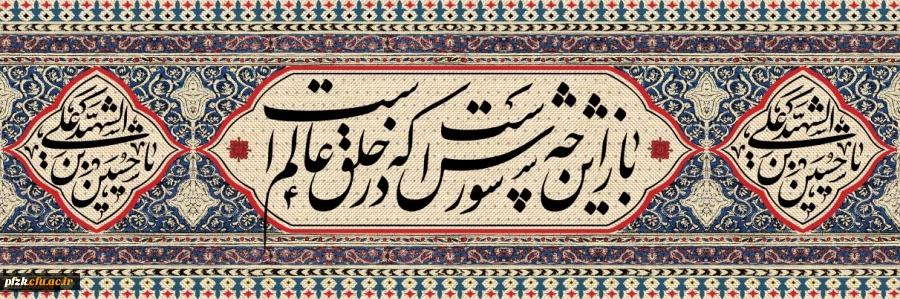 یا حسین بن علی الشهید
باز این چه شورش است که در خلق عالم است
یا حسین بن علی الشهید
pfzk.cfu.ac.ir